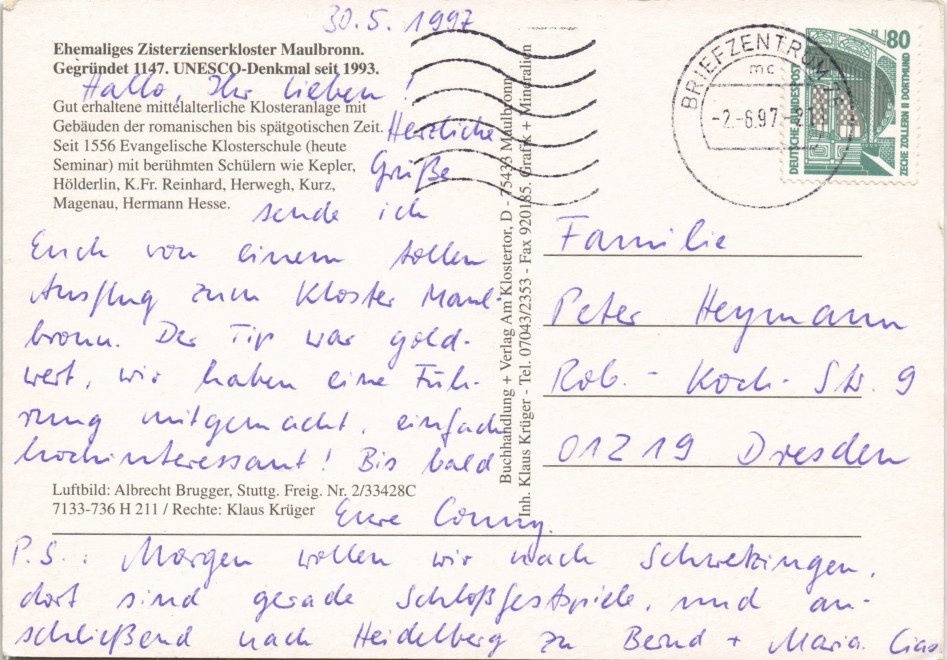 30.5.1997
Ehemaliges Zisterzienserkloster Maulbronn.
Gegründet 1147. UNESCO-Denkmal seit 1993.
Hallo, Ihr Lieben!
Gut erhaltene mittelalterliche Klosteranlage mit
Gebäuden der romanischen bis spätgotischen Zeit.
Seit 1556 Evangelische Klosterschule (heute
Seminar) mit berühmten Schülern wie Kepler,
Hölderlin, K.Fr. Reinhard, Herwegh, Kurz,
Magenau, Hermann Hesse.
Herzliche
Grüße
sende ich
Euch von einem tollen
Ausflug zum Kloster Maul-
bronn. Der Tip war gold-
wert, wir haben eine Füh-
rung mitgemacht, einfach
hochinteressant! Bis bald
Luftbild: Albrecht Brugger, Stuttg. Freig. Nr. 2/33428C
7133-736 H 211 / Rechte: Klaus Krüger
Eure Conny.
P.S.: Morgen wollen wir nach Schwetzingen,
dort sind gerade Schloßfestspiele, und an-
schließend nach Heidelberg zu Bernd + Maria. Ciao
Buchhandlung + Verlag Am Klostertor, D - 75433 Maulbronn
Inh. Klaus Krüger - Tel. 07043/2353 - Fax 920185. Grafik + Mineralien
BRIEFZENTRUM 75
mc
-2.-6.97
80
DEUTSCHE BUNDESPOST
ZECHE ZOLLERN II DORTMUND
Familie
Peter Heymann
Rob.-Koch-Str. 9
01219 Dresden